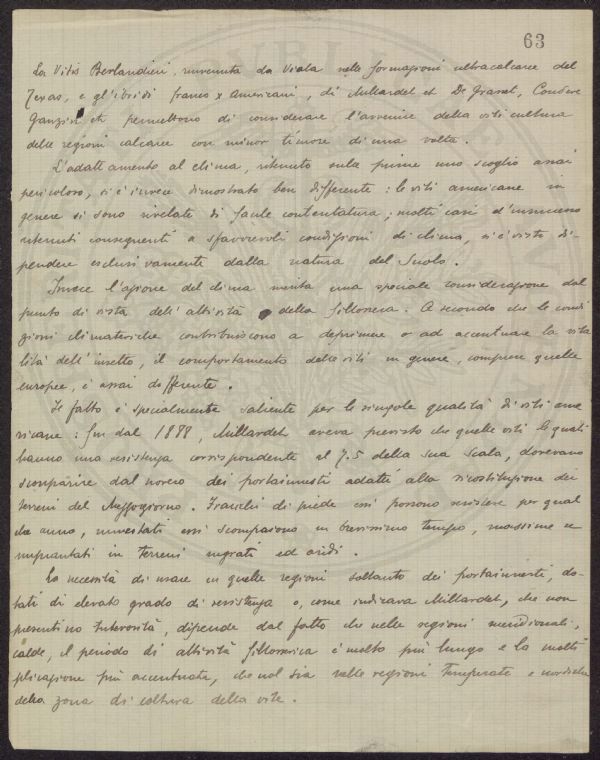 63
La Vitis Berlandieri, rinvenuta da Viala nelle formazioni ultracalcaree del
Texas, e gl'ibridi franco x americani, di Millardet et De Grasset, Couderc
Ganzin etc permettono di considerare l'avvenire della viticultura
delle regioni calcaree con minor timore di una volta.
L'adattamento al clima, ritenuto sulle prime uno scoglio assai
pericoloso, si è invece dimostrato ben differente: le viti americane in
genere si sono rivelate di facile contentatura; molti casi d'insuccesso
ritenuti conseguenti a sfavorevoli condizioni di clima, si è visto di-
pendere esclusivamente dalla natura del Suolo.
Invece l'azione del clima merita una speciale considerazione dal
punto di vista dell'attività della fillossera. A secondo che le condi
zioni climateriche contribuiscono a deprimere o ad accentuare la vita
lità dell'insetto, il comportamento delle viti in genere, comprese quelle
europee, è assai differente.
Il fatto è specialmente saliente per le singole qualità di viti ame
ricane: fin dal 1888, Millardet aveva previsto che quelle viti le quali
hanno una resistenza corrispondente al 7.5 della sua Scala, dovevano
scomparire dal novero dei portainnesti adatti alla ricostituzione dei
terreni del Mezzogiorno. Franchi di piede essi possono resistere per qual
che anno, innestati essi scompaiono in brevissimo tempo, massime se
impiantati in terreni ingrati ed aridi.
La necessità di usare in quelle regioni soltanto dei portainnesti, do-
tati di elevato grado di resistenza o, come indicava Millardet, che non
presentino tuberosità, dipende dal fatto che nelle regioni meridionali,
calde, il periodo di attività fillosserica è molto più lungo e la molti
plicazione più accentuata, che nol sia nelle regioni temperate e nordiche
della zona di coltura della vite.